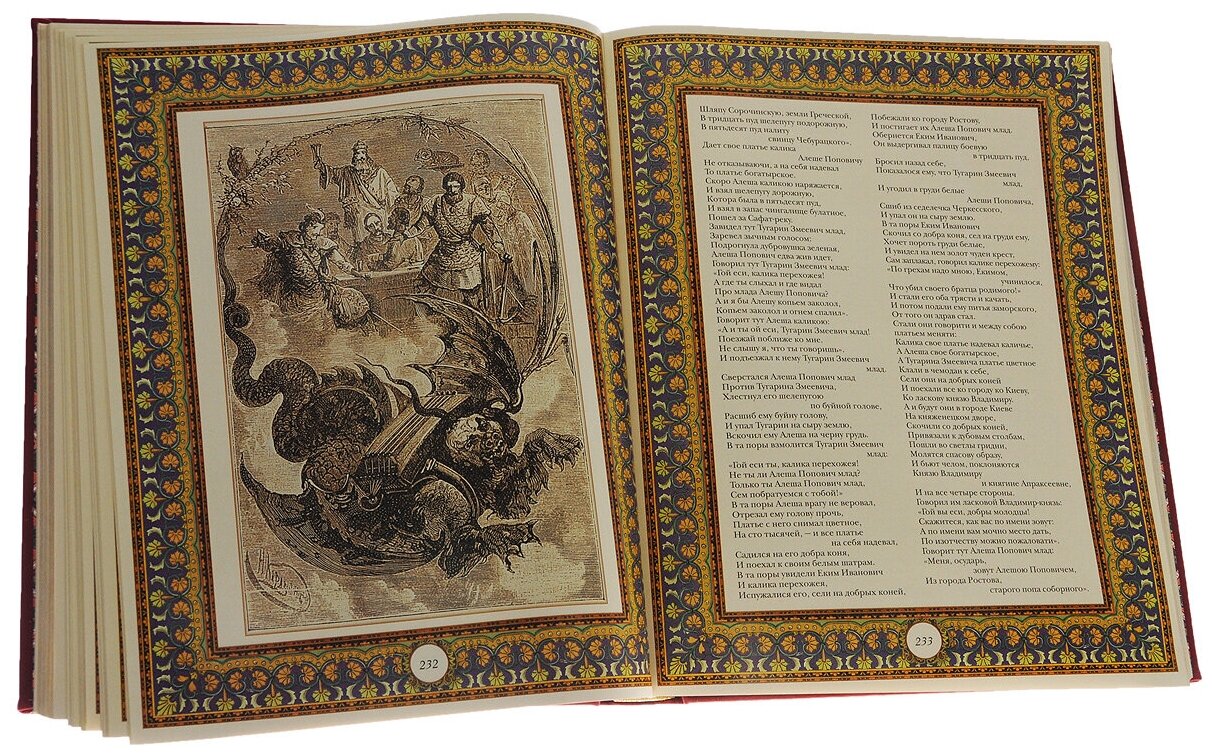 232
Шляпу Сорочинскую, земли Греческой,
В тридцать пуд шелепугу подорожную,
В пятьдесят пуд налиту
свинцу Чебурацкого».
Дает свое платье калика
Алеше Поповичу
Не отказываючи, а на себя надевал
То платье богатырское.
Скоро Алеша каликою наряжается,
И взял шелепугу дорожную,
Котора была в пятьдесят пуд,
И взял в запас чингалище булатное,
Пошел за Сафат-реку.
Завидел тут Тугарин Змеевич млад,
Заревел зычным голосом:
Подрогнула дубровушка зеленая,
Алеша Попович едва жив идет,
Говорил тут Тугарин Змеевич млад:
«Гой еси, калика перехожея!
А где ты слыхал и где видал
Про млада Алешу Поповича?
А и я бы Алешу копьем заколол,
Копьем заколол и огнем спалил».
Говорит тут Алеша каликою:
«А и ты ой еси, Тугарин Змеевич млад!
Поезжай поближе ко мне.
Не слышу я, что ты говоришь».
И подъезжал к нему Тугарин Змеевич
млад.
Сверстался Алеша Попович млад
Против Тугарина Змеевича,
Хлестнул его шелепугою
по буйной голове,
Расшиб ему буйну голову,
И упал Тугарин на сыру землю,
Вскочил ему Алеша на черну грудь.
В та поры взмолится Тугарин Змеевич
млад:
«Гой еси ты, калика перехожея!
Не ты ли Алеша Попович млад?
Только ты Алеша Попович млад,
Сем побратуемся с тобой!»
В та поры Алеша врагу не веровал,
Отрезал ему голову прочь,
Платье с него снимал цветное,
На сто тысячей, – и все платье
на себя надевал,
Садился на его добра коня,
И поехал к своим белым шатрам.
В та поры увидели Еким Иванович
И калика перехожея,
Испужалися его, сели на добрых коней,
Побежали ко городу Ростову,
И постигает их Алеша Попович млад.
Обернется Еким Иванович,
Он выдергивал палицу боевую
в тридцать пуд,
Бросил назад себе,
Показалося ему, что Тугарин Змеевич
млад,
И угодил в груди белые
Алеши Поповича,
Сшиб из седелечка Черкесского,
И упал он на сыру землю.
В та поры Еким Иванович
Скочил со добра коня, сел на груди ему,
Хочет пороть груди белые,
И увидел на нем золот чуден крест,
Сам заплакал, говорил калике перехожему:
«По грехам надо мною, Екимом,
учинилося,
Что убил своего братца родимого!»
И стали его оба трясти и качать,
И потом подали ему питья заморского,
От того он здрав стал.
Стали они говорити и между собою
платьем меняти:
Калика свое платье надевал каличье,
А Алеша свое богатырское,
А Тугарина Змеевича платье цветное
Клали в чемодан к себе,
Сели они на добрых коней
И поехали все ко городу ко Киеву,
Ко ласкову князю Владимиру.
А и будут они в городе Киеве
На княженецком дворе,
Скочили со добрых коней,
Привязали к дубовым столбам,
Пошли во светлы гридни,
Молятся спасову образу,
И бьют челом, поклоняются
Князю Владимиру
и княгине Апраксеевне,
И на все четыре стороны.
Говорил им ласковой Владимир-князь:
«Гой вы еси, добры молодцы!
Скажитеся, как вас по имени зовут:
А по имени вам мочно место дать,
По изотчеству можно пожаловати».
Говорит тут Алеша Попович млад:
«Меня, осударь,
зовут Алешою Поповичем,
Из города Ростова,
старого попа соборного».
233